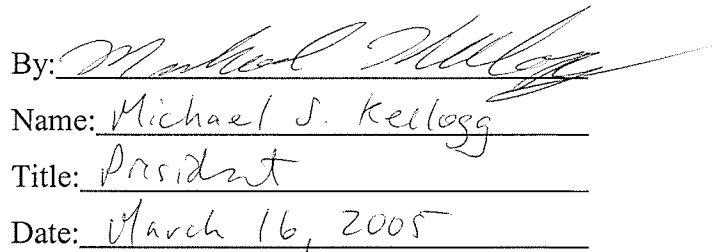 By: Michael Kellogg
Name: Michael S. Kellogg
Title: President
Date: March 16, 2005